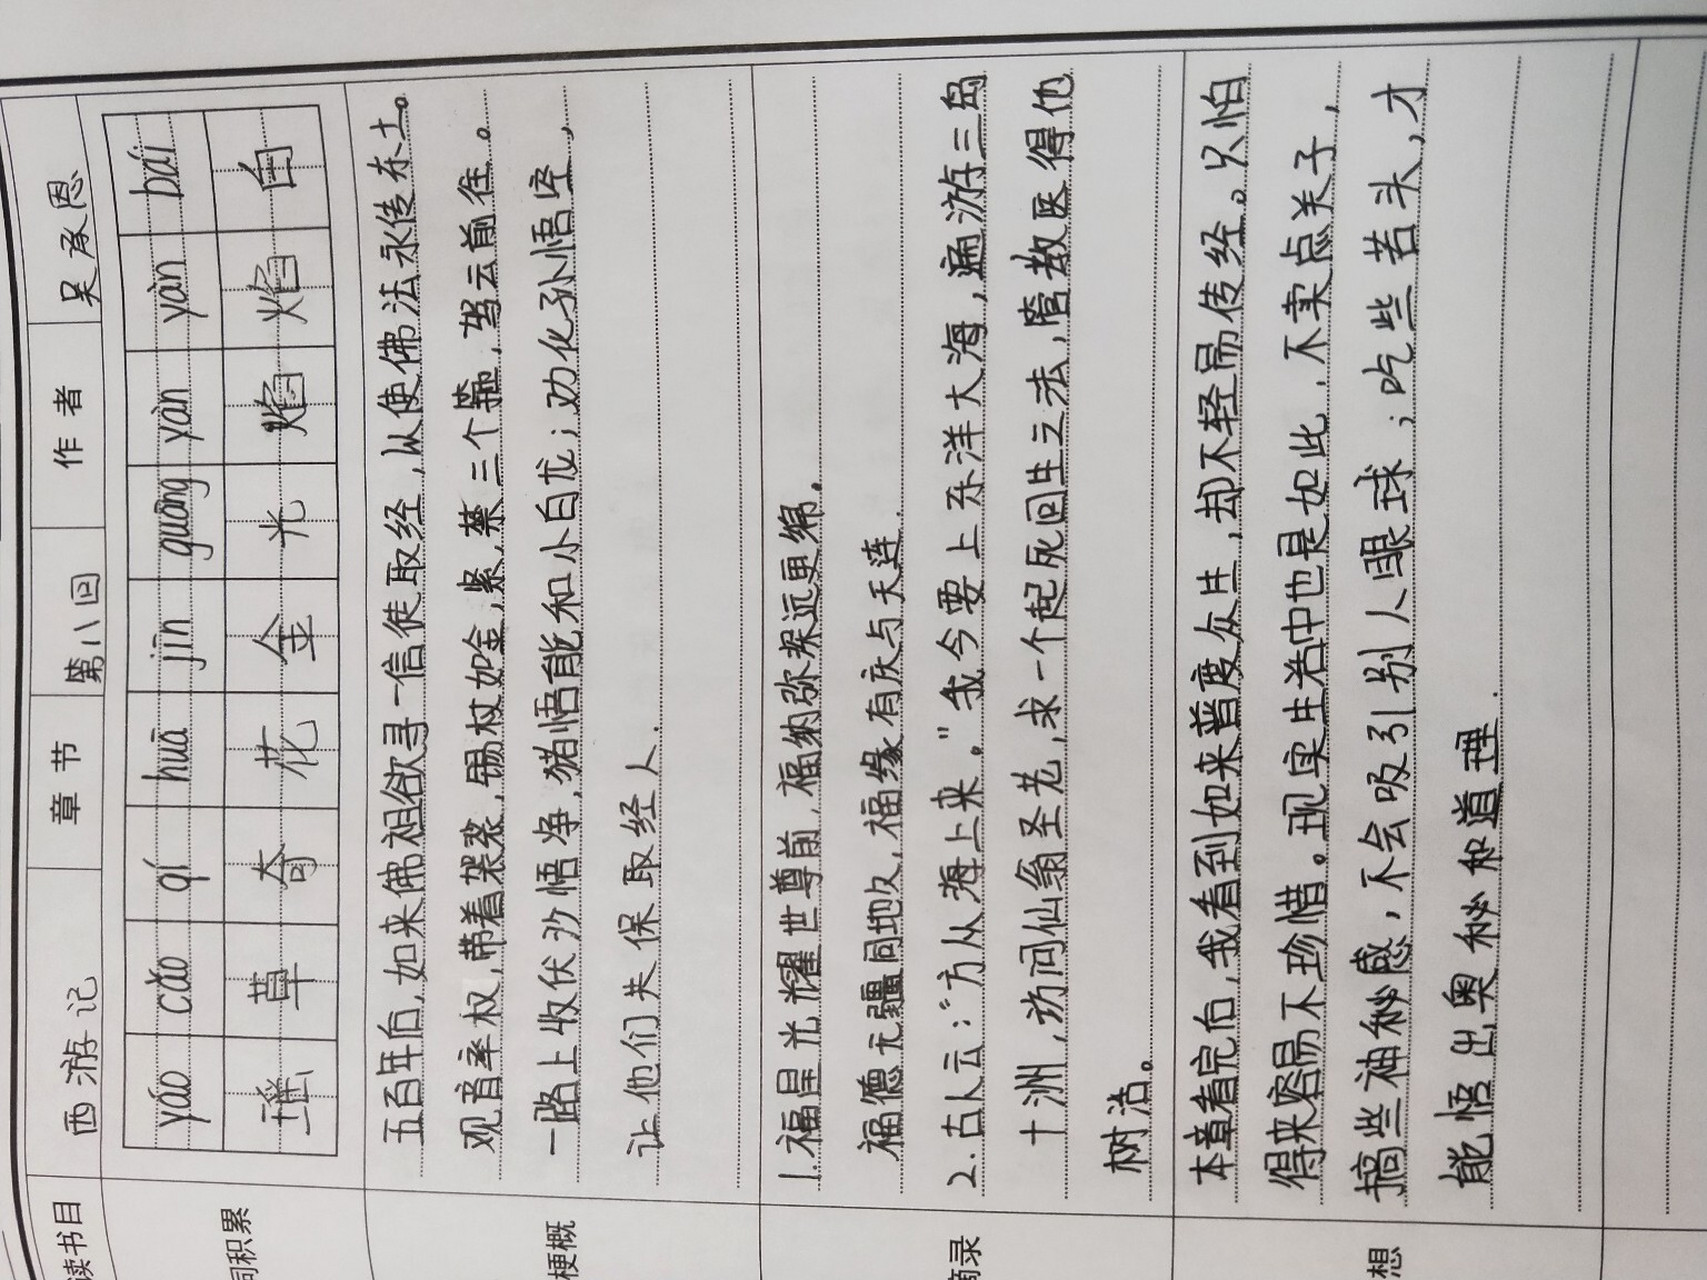 读书目 西游记 章节 第八回 作者 吴承恩
词积累
yáo cǎo qí huā jīn guāng yàn yàn bái
瑶 草 奇 花 金 光 焰 焰 白
梗概
五百年后,如来佛祖欲寻一信徒取经,从使佛法永传东土。
观音奉权,带着袈裟,锡杖如金,紧,禁三个箍,驾云前往。
一路上收伏沙悟净,猪悟能和小白龙;劝化孙悟空,
让他们共保取经人.
摘录
1.福星光耀世尊前,福纳弥深远更绵。
福德无疆同地久,福缘有庆与天连.
2.古人云:“方从海上来。”我今要上东洋大海,遍游三岛
十洲,访问仙翁圣老,求一个起死回生之法,管教医得他
树活。
想
本章看完后,我看到如来普度众生,却不轻易传经。只怕
得来容易不珍惜。现实生活中也是如此,不卖点关子,
搞些神秘感,不会吸引别人眼球;吃些苦头,才
能悟出奥秘和道理.